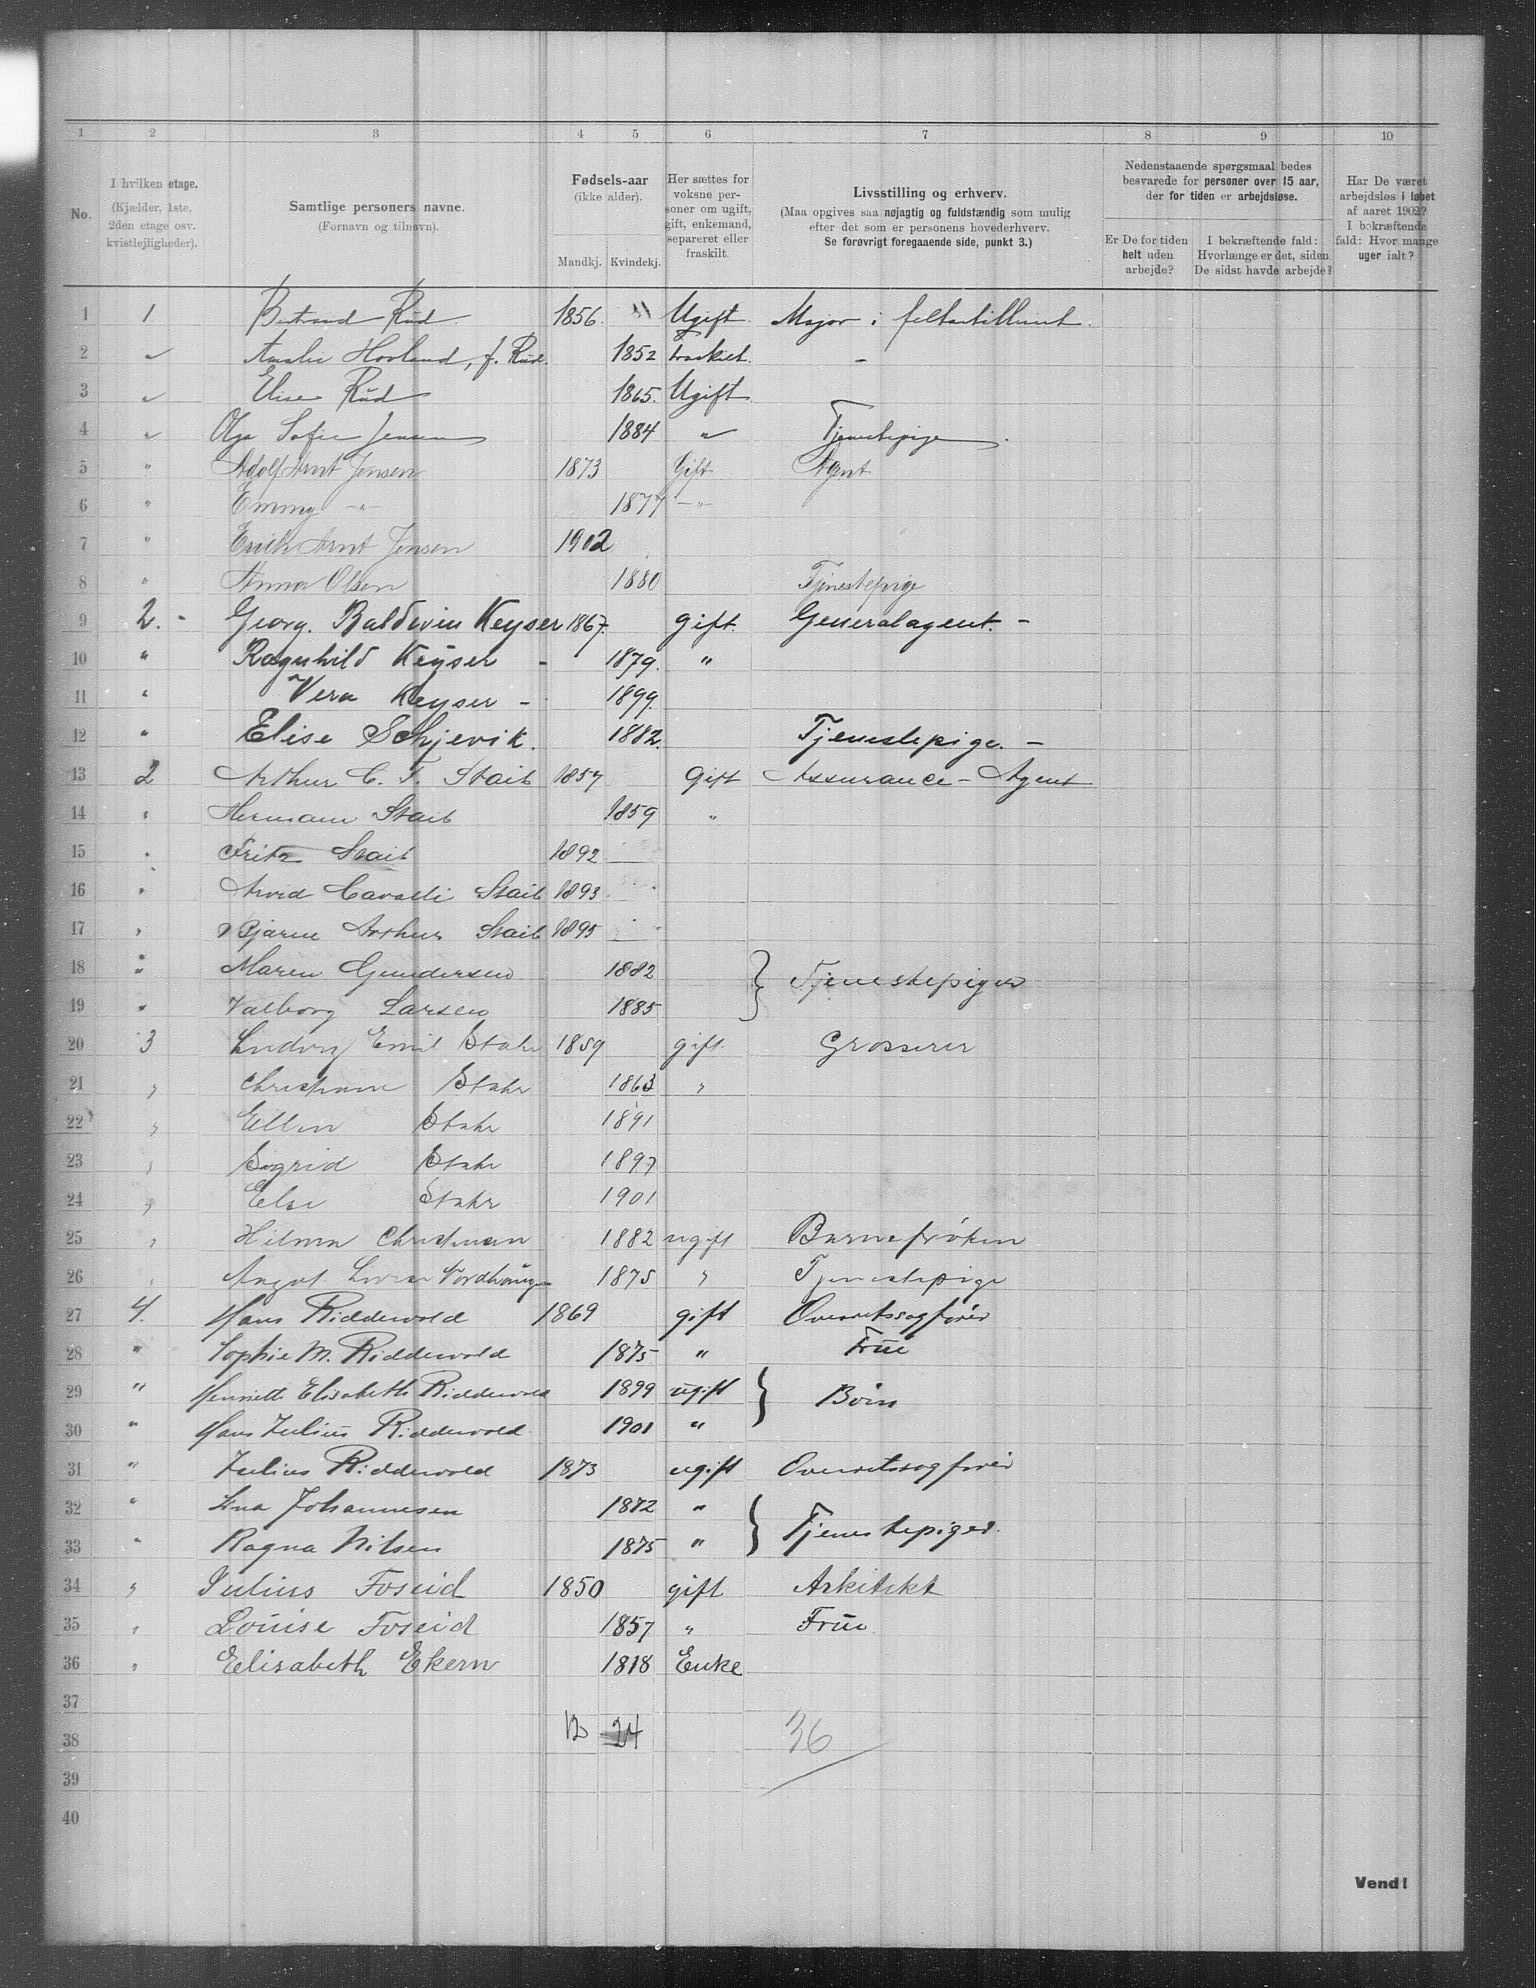 1 2 3 4 5 6 7 8 9 10
No.
I hvilken etage.
(Kjælder, 1ste,
2den etage osv.
kvistlejligheder).
Samtlige personers navne.
(Fornavn og tilnavn).
Fødsels-aar
(ikke alder).
Mandkj. Kvindekj.
Her sættes for
voksne per-
soner om ugift,
gift, enkemand,
separeret eller
fraskilt.
Livsstilling og erhverv.
(Maa opgives saa nøjagtig og fuldstændig som mulig
efter det som er personens hovederhverv.
Se forøvrigt foregaaende side, punkt 3.)
Nedenstaaende spørgsmaal bedes
besvarede for personer over 15 aar,
der for tiden er arbejdsløse.
Er De for tiden
helt uden
arbejde?
I bekræftende fald:
Hvorlænge er det, siden
De sidst havde arbejde?
Har De været
arbejdsløs i løbet
af aaret 1902?
I bekræftende
fald: Hvor mange
uger ialt?
1 1 Bertrand Rüd. 1856. Ugift Major i feltartilleriet.
2 " Amalie Hovland, f. Rüd. 1852 Fraskilt. -
3 " Elise Rüd 1865. Ugift
4 " Olga Sofie Jensen 1884 " Tjenestepige.
5 " Adolf Arnt Jensen 1873 Gift Agent
6 " Emmy -"- 1877 -"-
7 " Erich Arnt Jensen 1902
8 " Anna Olsen 1880 Tjenestepige
9 2. - Georg. Baldwin Keyser 1867. gift. Generalagent. -
10 " Ragnhild Keyser - 1879. "
11 " Vera Keyser - 1899.
12 " Elise Schjevik. 1882. Tjenestepige. -
13 2 Arthur C. F. Staib 1857 Gift Assurance-Agent
14 " Hermane Staib 1859 "
15 " Fritz Staib 1892
16 " Arvid Cavalli Staib 1893
17 " Bjarne Arthur Staib 1895
18 " Maren Gundersen 1882 } Tjenestepiger
19 " Valborg Larsen 1885
20 3 Ludvig Emil Stahr 1859 gift Grosserer
21 " Christiane Stahr 1863 "
22 " Ellen Stahr 1891
23 " Sigrid Stahr 1897
24 " Else Stahr 1901
25 " Hilma Christiansen 1882 ugift Barnefrøken
26 " Lovise 1875 " Tjenestepige
27 4. Hans Riddervold 1869 gift Overretssagfører
28 " Sophie M. Riddervold 1875 " Früe
29 " Henriette Elisabeth Riddervold 1899 ugift } Börn
30 " Hans Julius Riddervold. 1901 "
31 " Julius Riddervold 1873 ugift Overretssagfører
32 " Lina Johannesen 1872 " } Tjenestepiger.
33 " Ragna Nilsen 1875 "
34 " Julius Foseid 1850 gift Arkitekt
35 " Louise Foseid 1857 " Früe
36 " Elisabeth Ekern 1818 Enke
37
38 12 24 36
39
40
Vend!